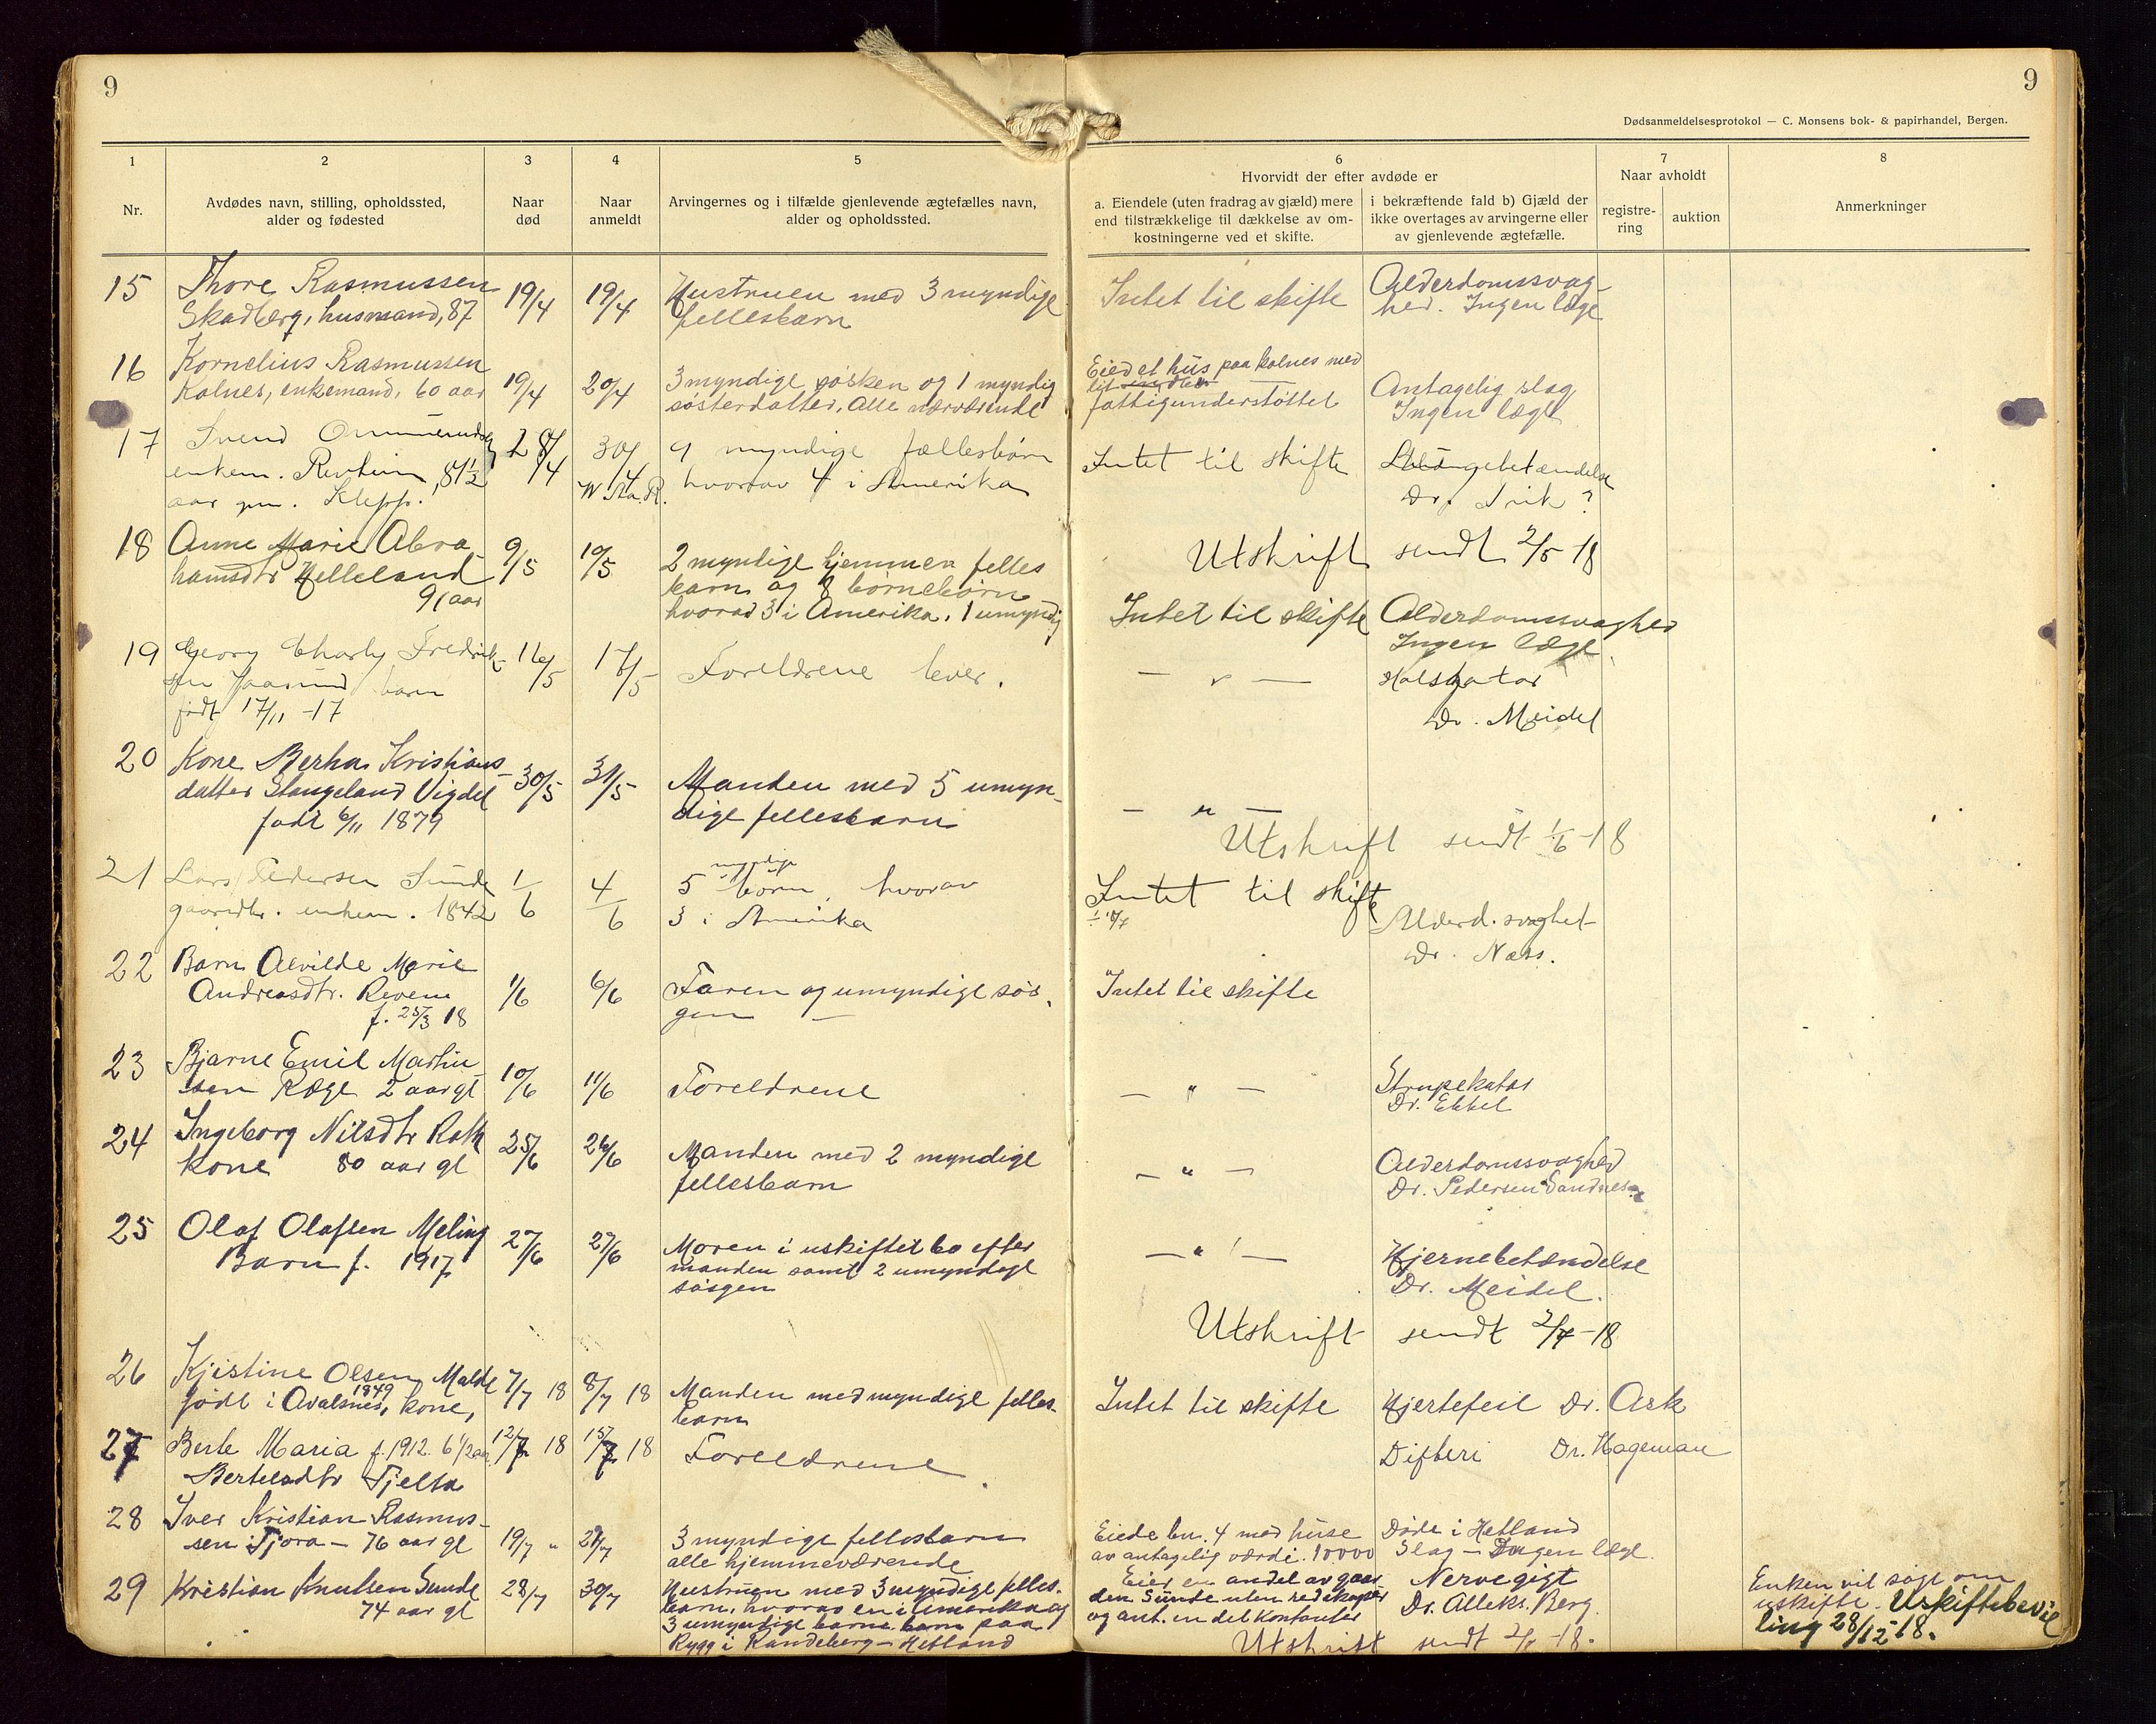 9
9
Dødsanmeldelsesprotokol — C. Monsens bok- & papirhandel, Bergen.
1
2
3
4
5
6
7
8
Nr.
Avdødes navn, stilling, opholdssted,
alder og fødested
Naar
død
Naar
anmeldt
Arvingernes og i tilfælde gjenlevende ægtefælles navn,
alder og opholdssted.
Hvorvidt der efter avdøde er
a. Eiendele (uten fradrag av gjæld) mere
end tilstrækkelige til dækkelse av om-
kostningerne ved et skifte.
i bekræftende fald b) Gjæld der
ikke overtages av arvingerne eller
av gjenlevende ægtefælle.
Naar avholdt
registre-
ring
auktion
Anmerkninger
15
Thore Rasmussen
Skadberg, husmand, 87
19/4
19/4
Hustruen med 3 myndige
fellesbarn
Intet til skifte
Alderdomssvag-
hed. Ingen læge
16
Kornelius Rasmussen
Kolnes, enkemand, 60 aar
19/4
20/4
3 myndige søsken og 1 myndig
søsterdatter. Alle nærværende
Eied et hus paa Kolnes med
lit
fattigunderstøttet
Antagelig slag
Ingen læge
17
Svend
enkem. 81 1/2
aar Klepp.
28/4
30/4
9 myndige fællesbørn
hvorav 4 i Amerika
Intet til skifte
Lungebetændelse
Dr. ?
Utskrift sendt 2/5 18
18
Anne Marie Abra
hamsdtr Helleland
91 aar
9/5
10/5
2 myndige hjemmen felles
barn og 8 børnebørn
hvorad 3 i Amerika. 1 umyndig
Intet til skifte
Alderdomssvaghed
Ingen læge
19
Georg Charly Fredrik-
sen Jaasund barn
født 17/11 -17
16/5
17/5
Foreldrene lever.
— " —
Halskatar
Dr. Meidel
20
Kone Bertha Kristians
datter Stangeland Vigdel
født 6/11 1879
30/5
31/5
Manden med 5 umyn-
dige fellesbarn
— " —
Utskrift sendt 1/6 -18
21
Lars Pedersen Sunde
enkem. 1842
1/6
4/6
5 myndige børn, hvorav
3 i Amerika
Intet til skifte
Alderd. svaghet
Dr. Næss.
22
Barn Alvilde Marie
Andreasdtr. Reveim
f. 25/3 18
1/6
6/6
Faren og umyndige søs-
gen
Intet til skifte
23
Bjarne Emil Martin
sen Ræge 2 aar gl
10/6
11/6
Foreldrene
— " —
Strupekatar
Dr. Ebbel
24
Ingeborg Nilsdtr Rott
kone 80 aar gl
25/6
26/6
Manden med 2 myndige
fellesbarn
— " —
Alderdomssvaghed
Dr. Pedersen Sandnes
25
Olaf Olafsen Meling
Barn f. 1917
27/6
27/6
Moren i uskiftet bo efter
manden samt 2 umyndige
søsgen
— " —
Hjernebetændelse
Dr. Meidel.
Utskrift sendt 2/7 -18
26
Kjistine Olsen Malde
født i Avalsnes, 1849 kone,
7/7 18
8/7 18
Manden med myndige felles-
barn
Intet til skifte
Hjertefeil Dr. Ask
27
Berte Maria f. 1912. 6 1/2 aar
Bertelsdtr Tjelta
12/7 18
15/7 18
Foreldrene
Difteri Dr. Hageman
28
Iver Kristian Rasmus-
sen Tjora — 76 aar gl
19/7 "
21/7
3 myndige fellesbarn
alle hjemmeværende
Eiede bn. 4 med huse
av antagelig værdi. 10000
Døde i Hetland
Slag — Ingen læge.
29
Kristian Knutsen Sunde
74 aar gl
28/7
30/7
Hustruen med 3 myndige felles-
barn, hvorav en i Amerika og
3 umyndige barne-barn paa
Rygg i Randeberg — Hetland
Eier en andel av gaar
den Sunde uten redskaper
og ant. en del kontanter
Nervegigt
Dr. Alleks. Berg.
Utskrift sendt 2/8 -18.
Enken vil søge om
uskifte. Uskiftebevil
ling 28/12 -18.